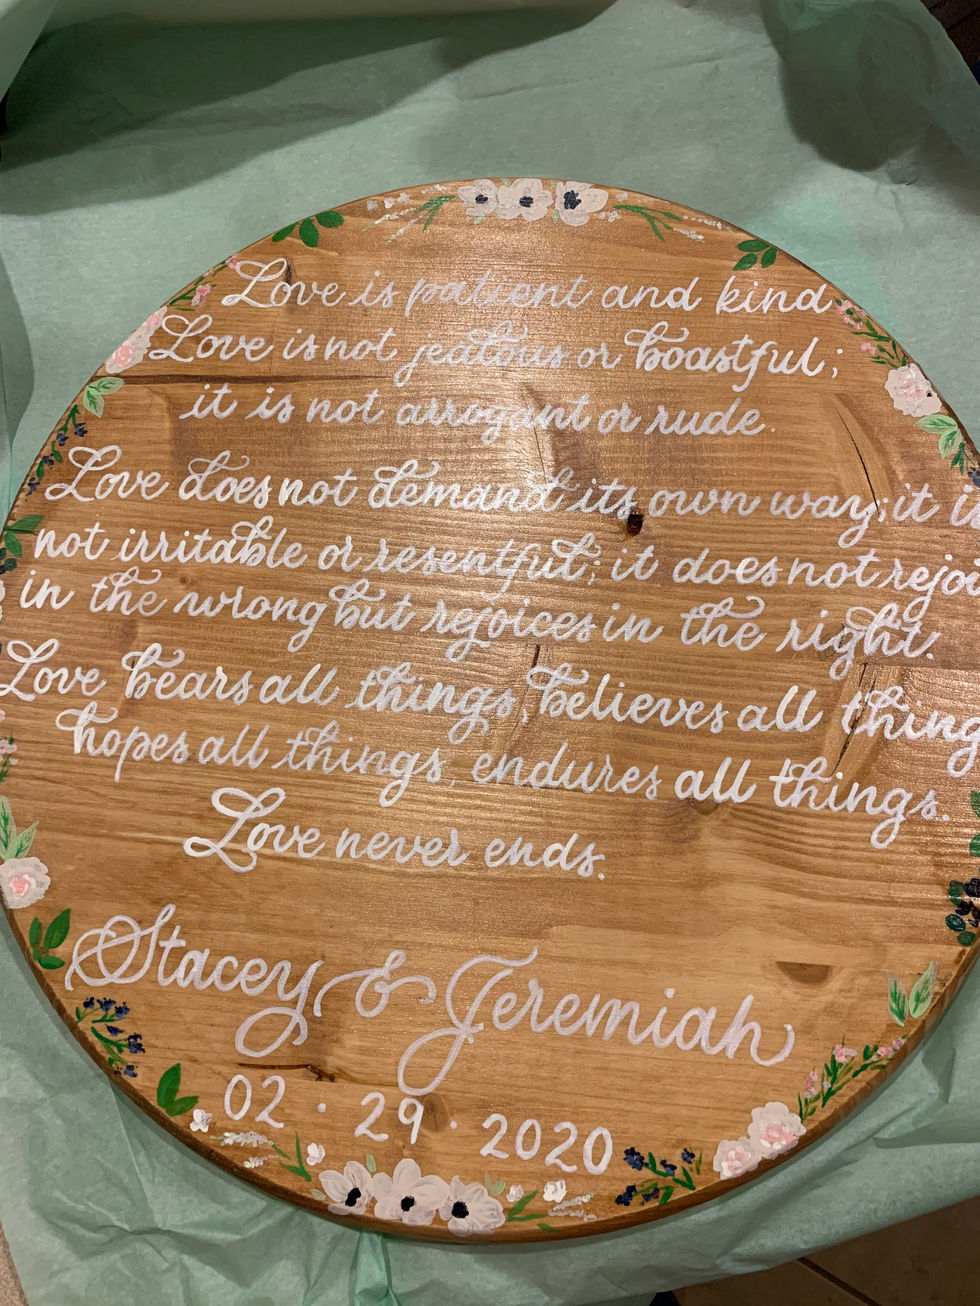 Love is patient and kind
Love is not jealous or boastful;
it is not arrogant or rude.
Love does not demand its own way; it i
not irritable or resentful; it does not rejo
in the wrong but rejoices in the right.
Love bears all things, believes all thing
hopes all things, endures all things.
Love never ends.
Stacey & Jeremiah
02 · 29 · 2020